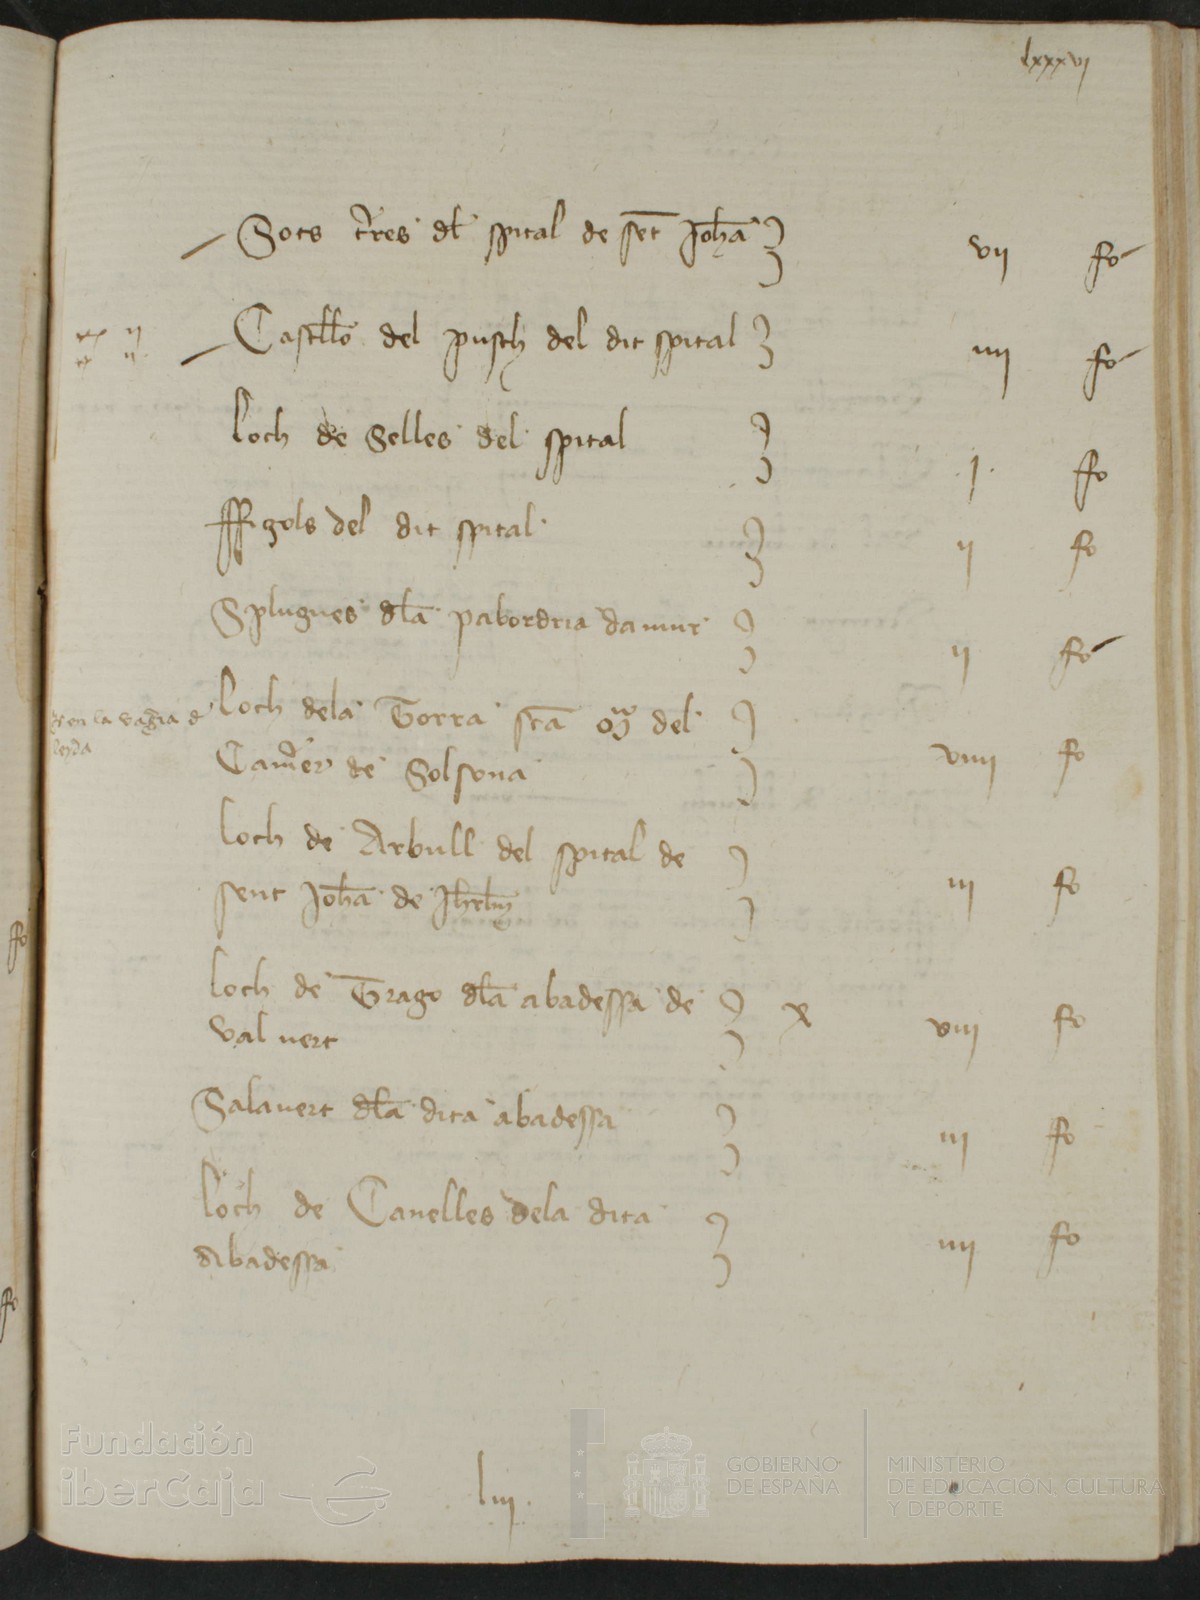 lxxxvj
Sots t̃res dl̃ spital de sẽt Joh̃a vij fo
Castlló del puɡh del dit spital iiij fo
loch de Selles del spital .j. fo
ffigols del dit spital ij fo
Splugues dl̃a pabordria damur ij fo
loch dela Torra del
Cam̃er de Solsona viiij fo
loch de Arbull del spital de
sent Joh̃a de Jhrl̃m iij fo
loch de Trago dl̃a abadessa de x viij fo
val vert
Salavert dl̃a dita abadessa iij fo
loch de Canelles dela dita iiij fo
abadessa
liij.
Fundación
iberCaja
GOBIERNO
DE ESPAÑA
MINISTERIO
DE EDUCACIÓN, CULTURA
Y DEPORTE